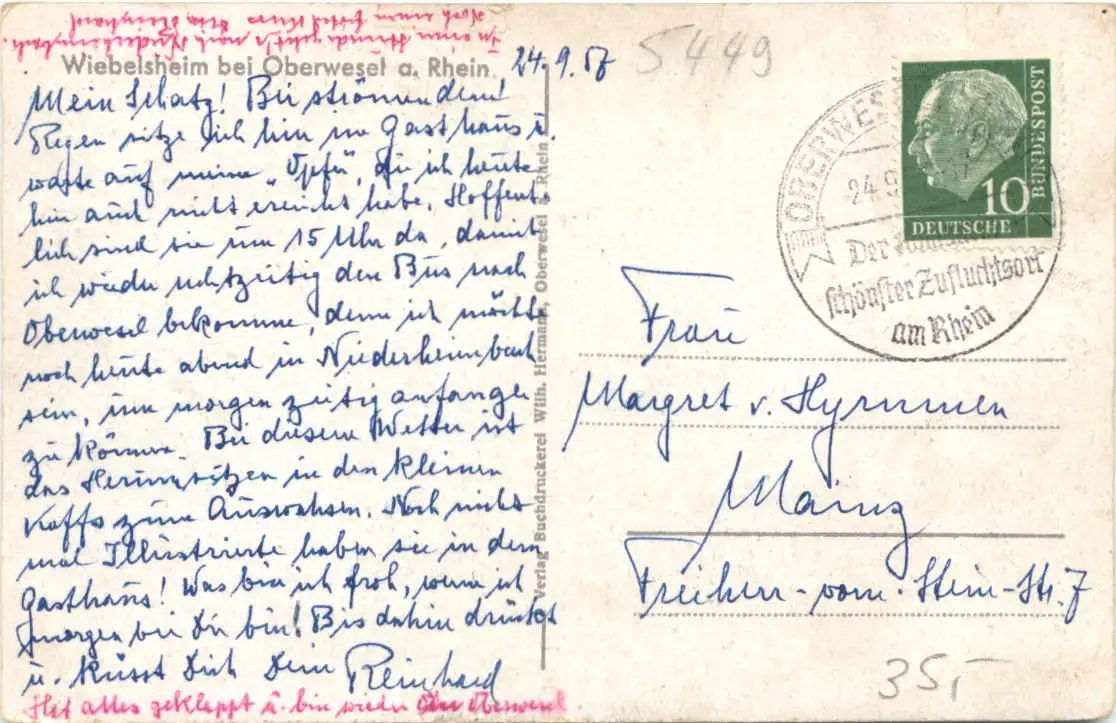 Wiebelsheim bei Oberwesel a. Rhein
24.9.57
Mein Schatz! Bei strömendem
Regen sitze ich hier im Gasthaus u.
warte auf meine „Opfer“, die ich heute
hier auch nicht erreicht habe. Hoffent-
lich sind sie um 15 Uhr da, damit
ich wieder rechtzeitig den Bus nach
Oberwesel bekomme, denn ich möchte
noch heute abend in Niederheimbach
sein, um morgen zeitig anfangen
zu können. Bei diesem Wetter ist
das Herumsitzen in den kleinen
Kaffs zum Auswachsen. Noch nicht
mal Illustrierte haben sie in dem
Gasthaus! Was bin ich froh, wenn ich
morgen bei Dir bin! Bis dahin drückt
u. küsst Dich Dein Reinhard
Hat alles geklappt u. bin wieder in Oberwesel.
In einer Stunde geht's nach Niederheimbach.
Noch einen Kuss Dein Reinhard
Verlag Buchdruckerei Wilh. Hermann, Oberwesel a. Rhein
5449
OBERWES
24.9
Der
schönster Zufluchtsort
am Rhein
10
DEUTSCHE
BUNDESPOST
Frau
Margret v. Hymmen
Mainz
Freiherr-vom-Stein-Str. 7
35,-